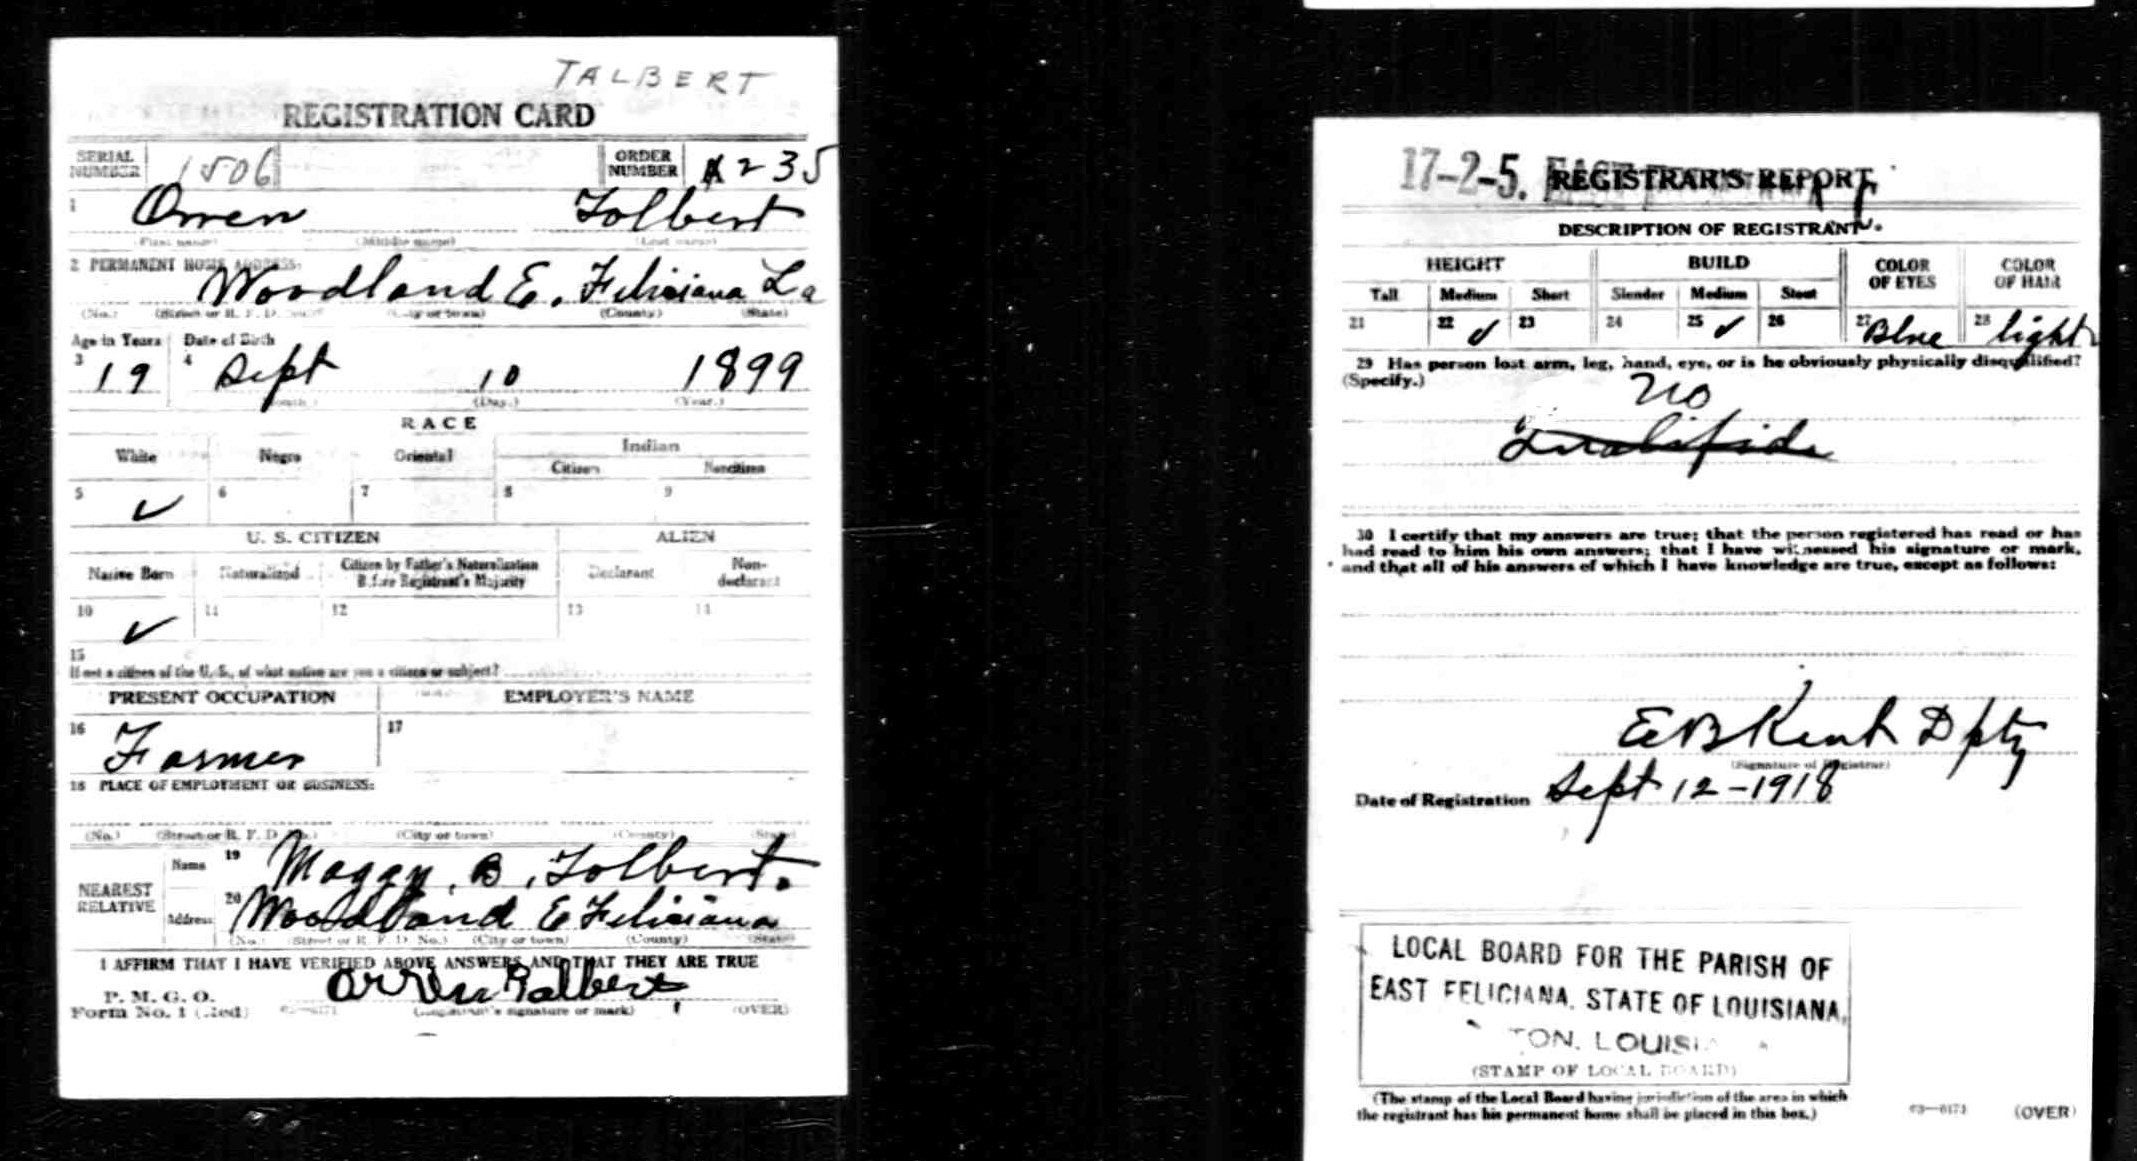 TALBERT
REGISTRATION CARD
SERIAL NUMBER 1506 ORDER NUMBER A235
1 Orren Tolbert
(First name) (Middle name) (Last name)
2 PERMANENT HOME ADDRESS:
Woodland E. Feliciana La
(No.) (Street or R. F. D. No.) (City or town) (County) (State)
Age in Years Date of Birth
3 19 4 Sept 10 1899
(Month.) (Day.) (Year.)
RACE
White Negro Oriental Indian
Citizen Noncitizen
5 ✓ 6 7 8 9
U. S. CITIZEN ALIEN
Native Born Naturalized Citizen by Father's Naturalization Before Registrant's Majority Declarant Non-declarant
10 ✓ 11 12 13 14
15
If not a citizen of the U. S., of what nation are you a citizen or subject?
PRESENT OCCUPATION EMPLOYER'S NAME
16 Farmer 17
18 PLACE OF EMPLOYMENT OR BUSINESS:
(No.) (Street or R. F. D. No.) (City or town) (County) (State)
NEAREST RELATIVE Name 19 Maggy. B. Tolbert.
Address 20 Woodland E Feliciana
(No.) (Street or R. F. D. No.) (City or town) (County) (State)
I AFFIRM THAT I HAVE VERIFIED ABOVE ANSWERS AND THAT THEY ARE TRUE
P. M. G. O.
Form No. 1 (Red) 03—6171 Orren Talbert (Registrant's signature or mark) (OVER)
17-2-5. REGISTRAR'S REPORT
DESCRIPTION OF REGISTRANT.
HEIGHT BUILD COLOR OF EYES COLOR OF HAIR
Tall Medium Short Slender Medium Stout
21 22 ✓ 23 24 25 ✓ 26 27 Blue 28 light
29 Has person lost arm, leg, hand, eye, or is he obviously physically disqualified?
(Specify.)
no
30 I certify that my answers are true; that the person registered has read or has
had read to him his own answers; that I have witnessed his signature or mark,
and that all of his answers of which I have knowledge are true, except as follows:
E B Kent Dpty
(Signature of Registrar)
Date of Registration Sept 12-1918
LOCAL BOARD FOR THE PARISH OF
EAST FELICIANA, STATE OF LOUISIANA,
TON, LOUISI
(STAMP OF LOCAL BOARD)
(The stamp of the Local Board having jurisdiction of the area in which
the registrant has his permanent home shall be placed in this box.)
03—6171 (OVER)